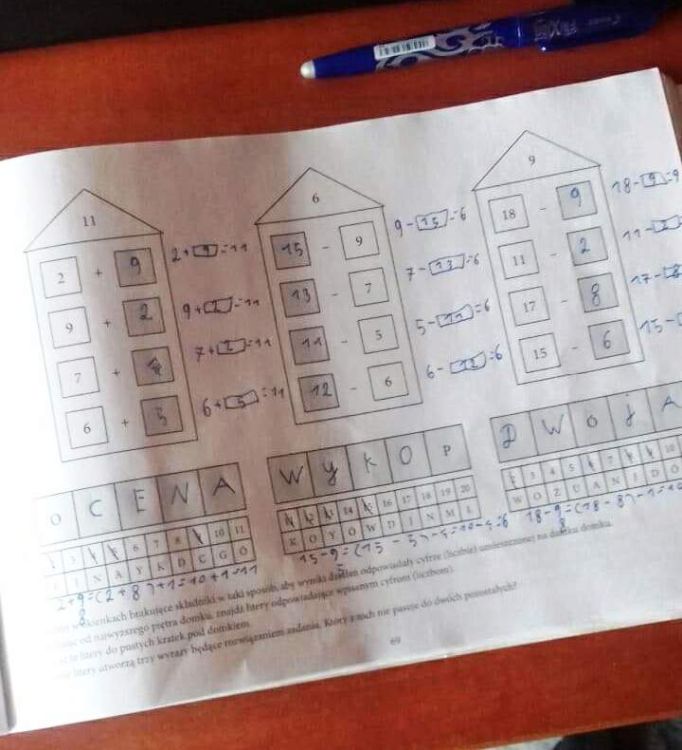 11
2 + 9
9 + 2
7 + 4
6 + 5
9+2=11
7+2=11
6+5=11
O C E N A
6
15 - 9
13 - 7
11 - 5
12 - 6
9-15=6
7-13=6
5-11=6
6-12=6
W y K O P
14 15 16 17 18 19 20
K O Y O W D I N M L
15-9=(15-5)-4=10-4=6
5
9
18 - 9
11 - 2
17 - 8
15 - 6
18-9=9
D W O J A
3 4 5 7 10
W O Z U A N I D O
18-9=(18-8)-1=10
8
6 7 8 10 11
N A Y K D C G O
2+9=(2+8)+1=10+1=11
8
okienkach brakujące składniki w taki sposób, aby wyniki działań odpowiadały cyfrze (liczbie) umieszczonej na daszku domku.
od najwyższego piętra domku, znajdź litery odpowiadające wpisanym cyfrom (liczbom).
te litery do pustych kratek pod domkiem.
litery utworzą trzy wyrazy będące rozwiązaniem zadania. Który z nich nie pasuje do dwóch pozostałych?
69